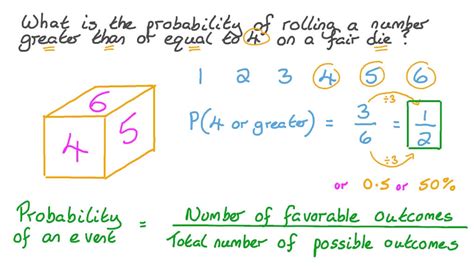 What is the probability of rolling a number
greater than or equal to 4 on a fair die?
6
4 5
1 2 3 4 5 6
÷3
P(4 or greater) = 3/6 = 1/2
÷3
or 0.5 or 50%
Probability of an event = Number of favorable outcomes / Total number of possible outcomes